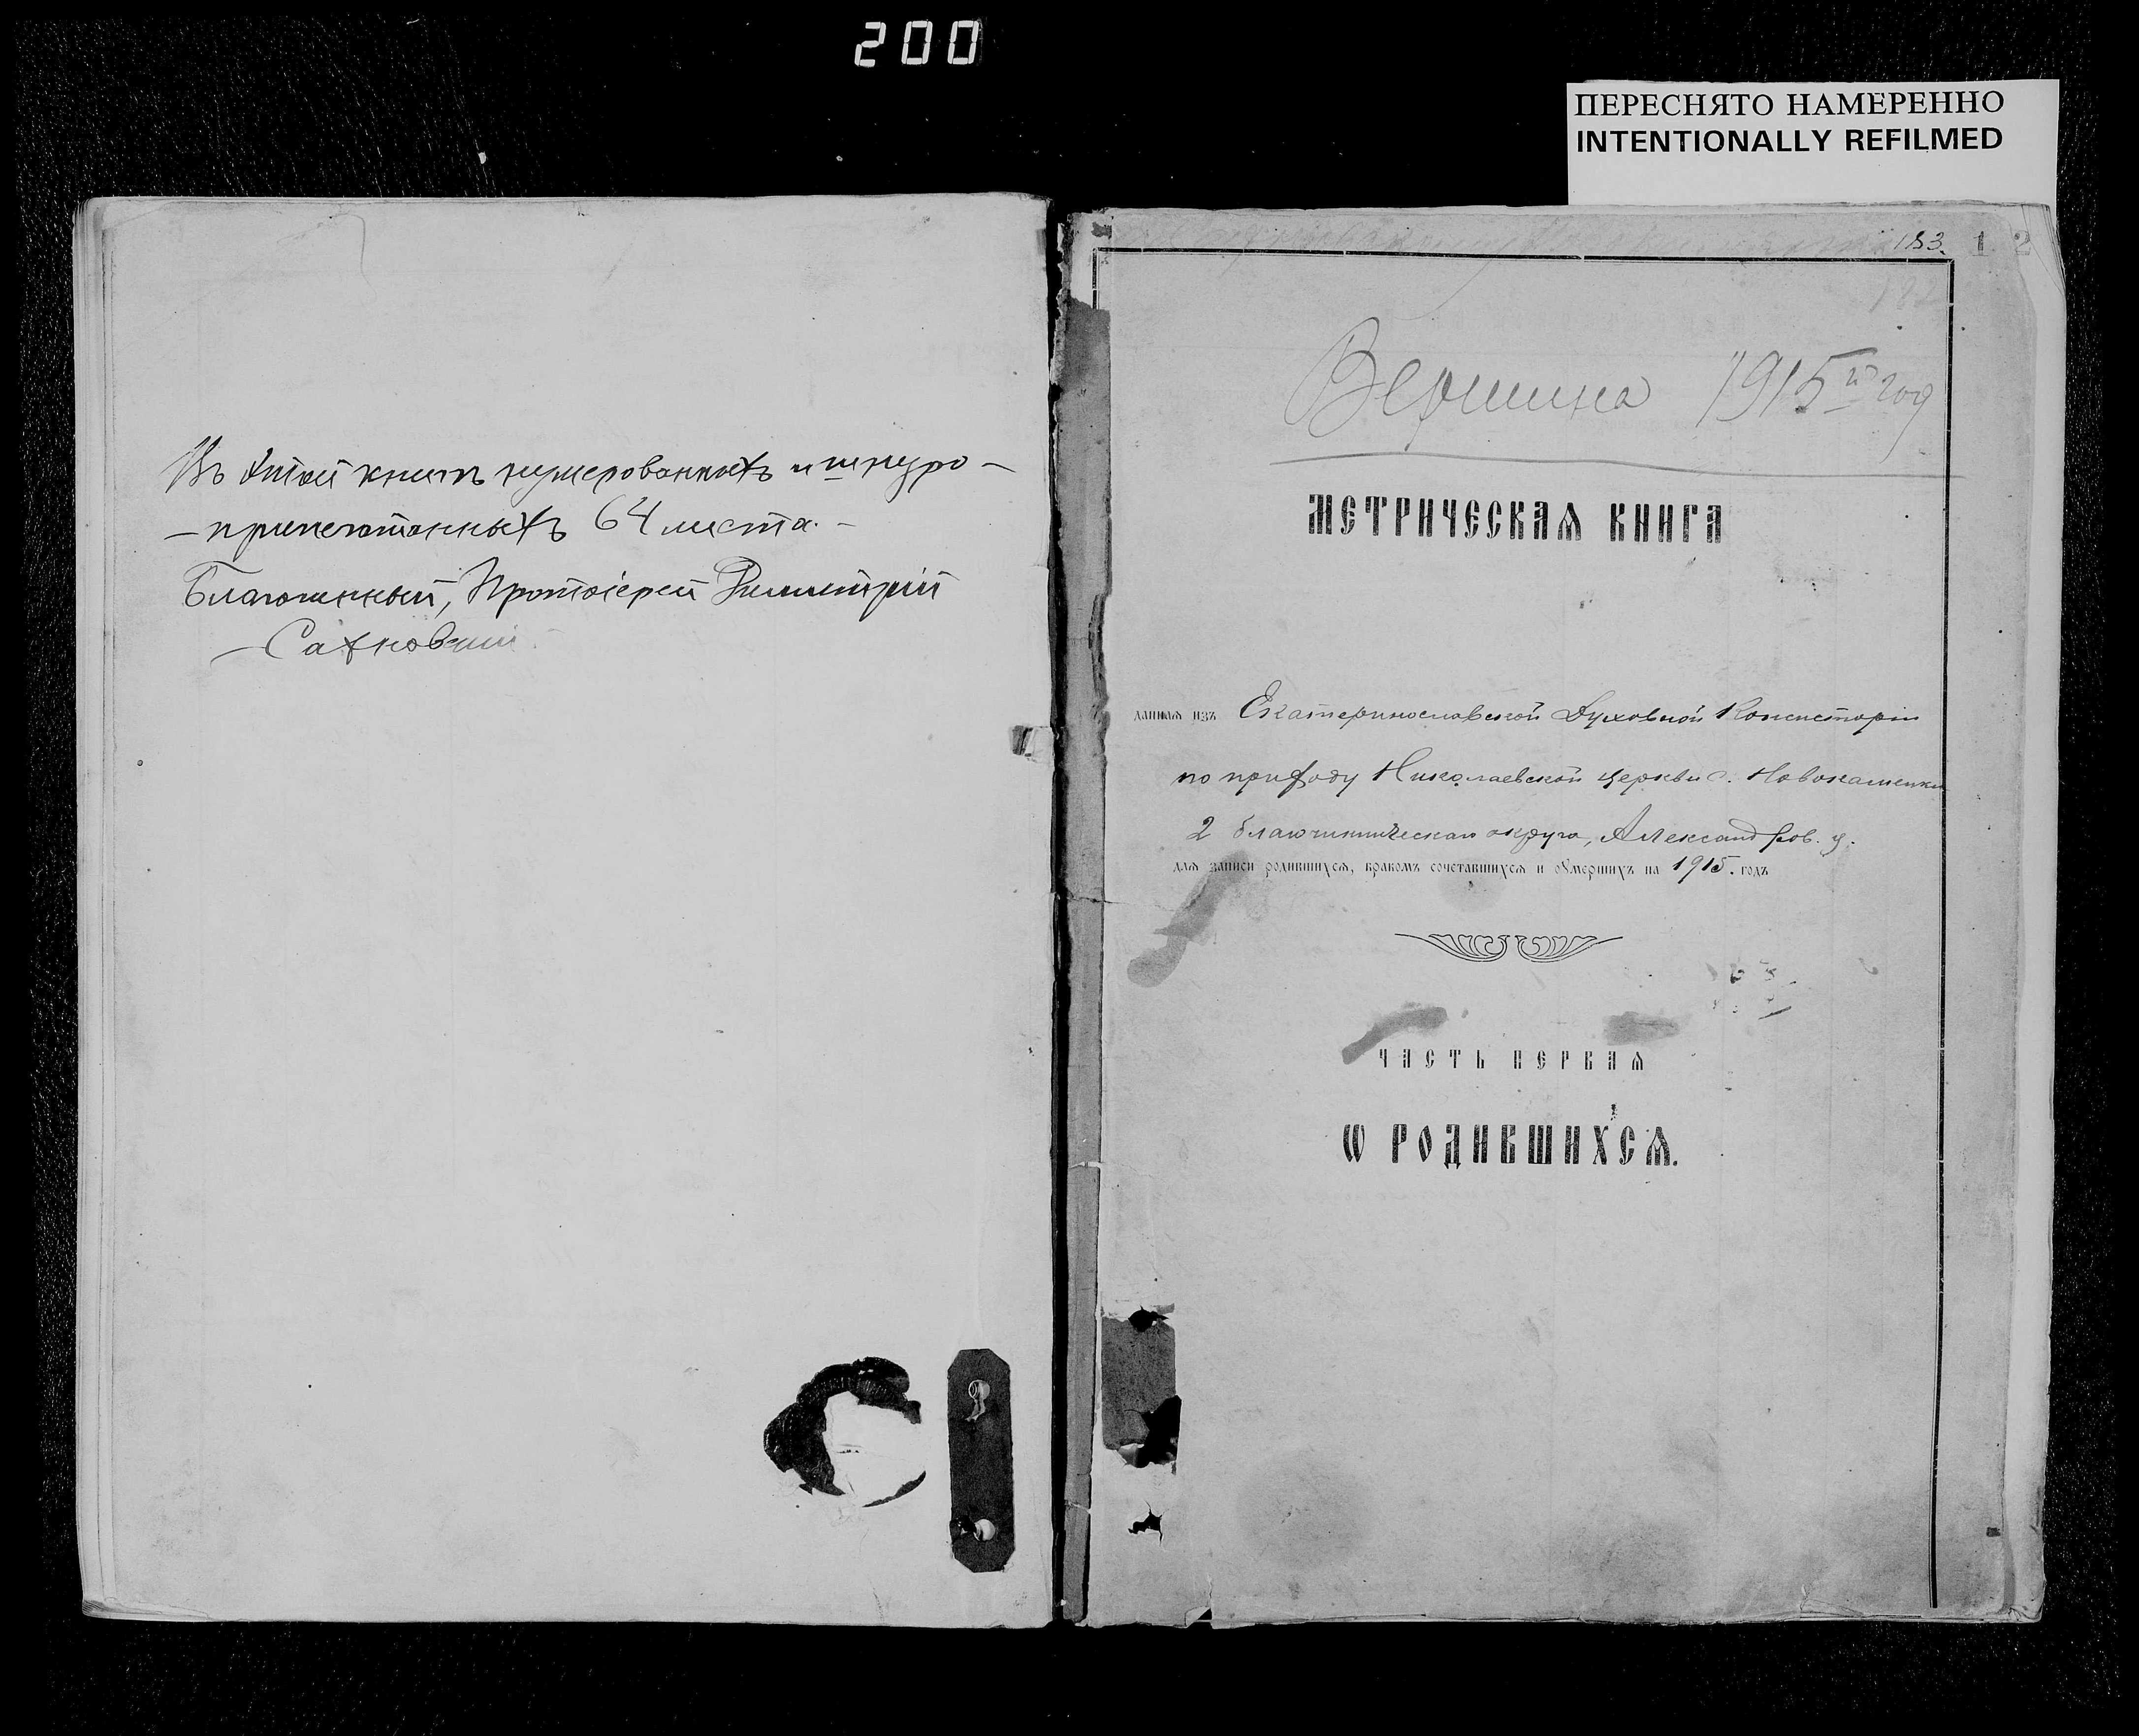 200
ПЕРЕСНЯТО НАМЕРЕННО
INTENTIONALLY REFILMED
Въ этой книгѣ нумерованныхъ и шнуро-
-припечатанныхъ 64 листа.-
Благочинный, Протоіерей Димитрій
-Сахновскій
183. 1 2
Вершина 1915й год
МЕТРИЧЕСКАѦ КНИГА
даннаѧ изъ Екатеринославской Духовной Консисторіи
по приходу Николаевской церкви с.
2 благочинническаго округа, Александров. у.
длѧ записи родившихсѧ, бракомъ сочетавшихсѧ и ᲂумершихъ на 1915. годъ
ЧАСТЬ ПЕРВАѦ
Ѡ РОДИВШИХСѦ.